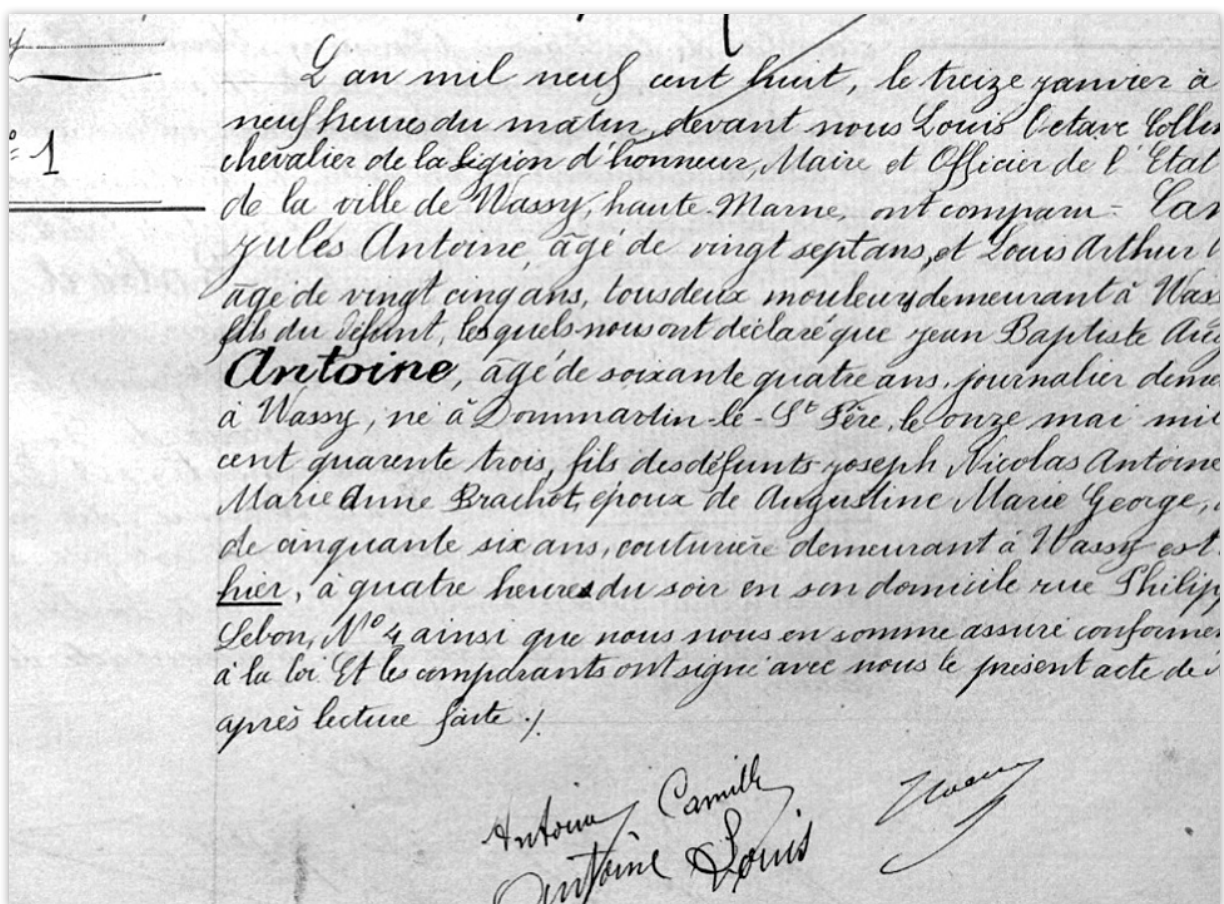 1
L'an mil neuf cent huit, le treize janvier à
neuf heures du matin, devant nous Louis Octave Collin
chevalier de la Légion d'honneur, Maire et Officier de l'Etat
de la ville de Wassy, haute-Marne, ont comparu = Cam
jules Antoine, âgé de vingt sept ans, et Louis Arthur
âgé de vingt cinq ans, tous deux mouleurs demeurant à Wass
fils du défunt, lesquels nous ont déclaré que jean Baptiste Aug
Antoine, âgé de soixante quatre ans, journalier deme
à Wassy, né à Dommartin-le-St Père, le onze mai mil
cent quarente trois, fils des défunts joseph Nicolas Antoine
Marie Anne Brachot, époux de Augustine Marie George,
de cinquante six ans, couturière demeurant à Wassy est
hier, à quatre heures du soir en son domicile rue Philipp
Lebon, No 4 ainsi que nous nous en somme assuré conformé
à la loi. Et les comparants ont signé avec nous le présent acte de
après lecture faite ./.
Antoine Camille
Antoine Louis